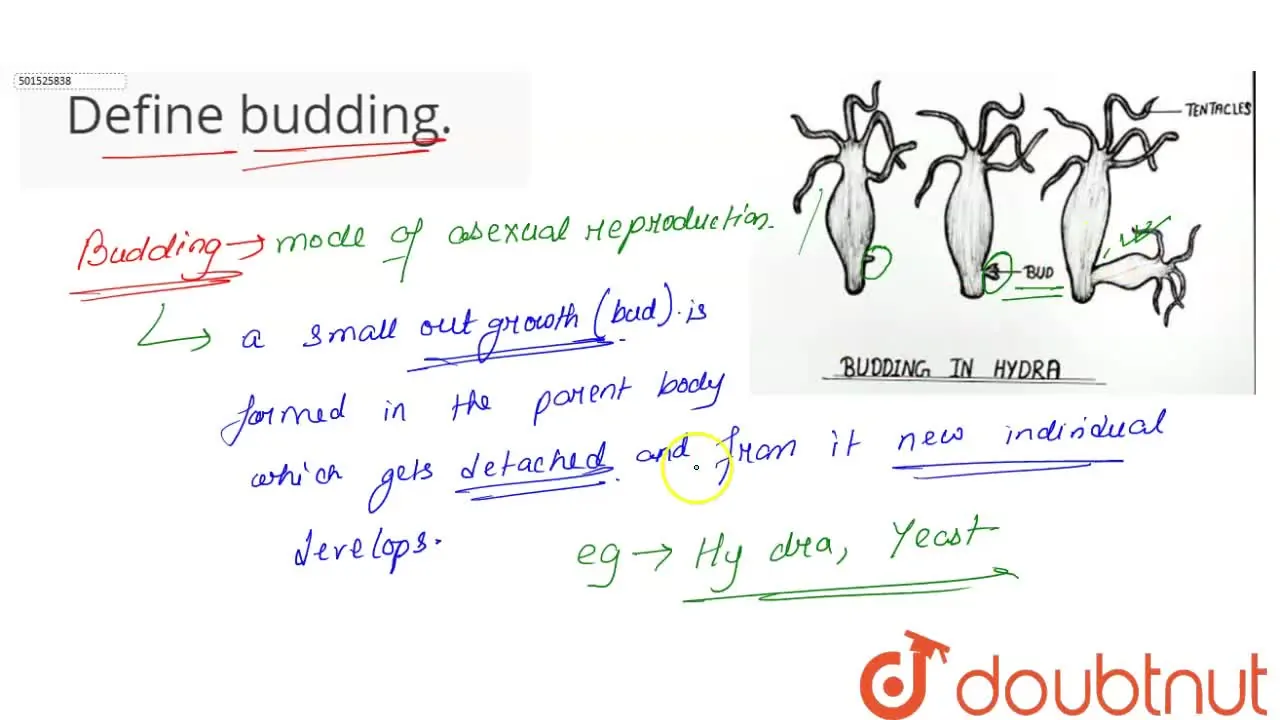 501525838
Define budding.
TENTACLES
Budding → mode of asexual reproduction.
BUD
↳ a small outgrowth (bud). is
BUDDING IN HYDRA
formed in the parent body
which gets detached and from it new individual
develops.
eg → Hydra, Yeast
doubtnut